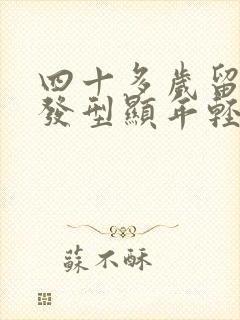 四十多歲留
發型顯年輕
蘇不酥